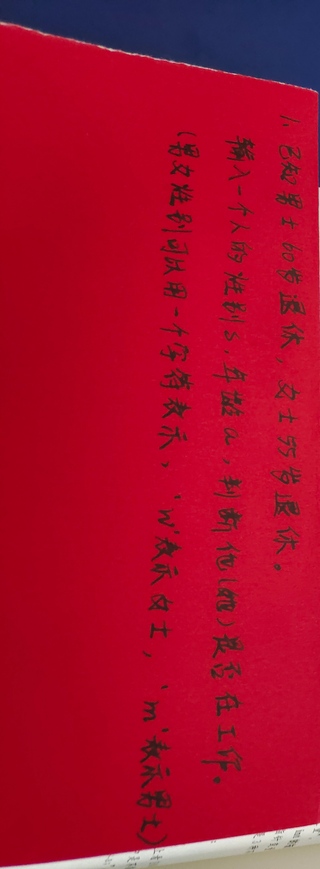 1、已知男士60岁退休，女士55岁退休。
输入一个人的性别s，年龄a，判断他(她)是否在工作。
(男女性别可以用一个字符表示，'w'表示女士，'m'表示男士)